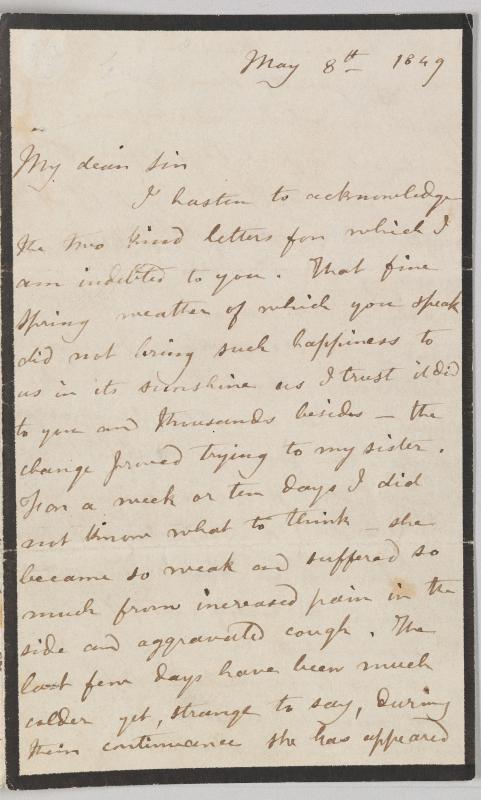 May 8th 1849
My dear Sir
I hasten to acknowledge
the two kind letters for which I
am indebted to you. That fine
spring weather of which you speak
did not bring such happiness to
us in its sunshine as I trust it did
to you and thousands besides — the
change proved trying to my sister.
For a week or ten days I did
not know what to think — she
became so weak and suffered so
much from increased pain in the
side and aggravated cough. The
last few days have been much
colder yet, strange to say, during
their continuance she has appeared